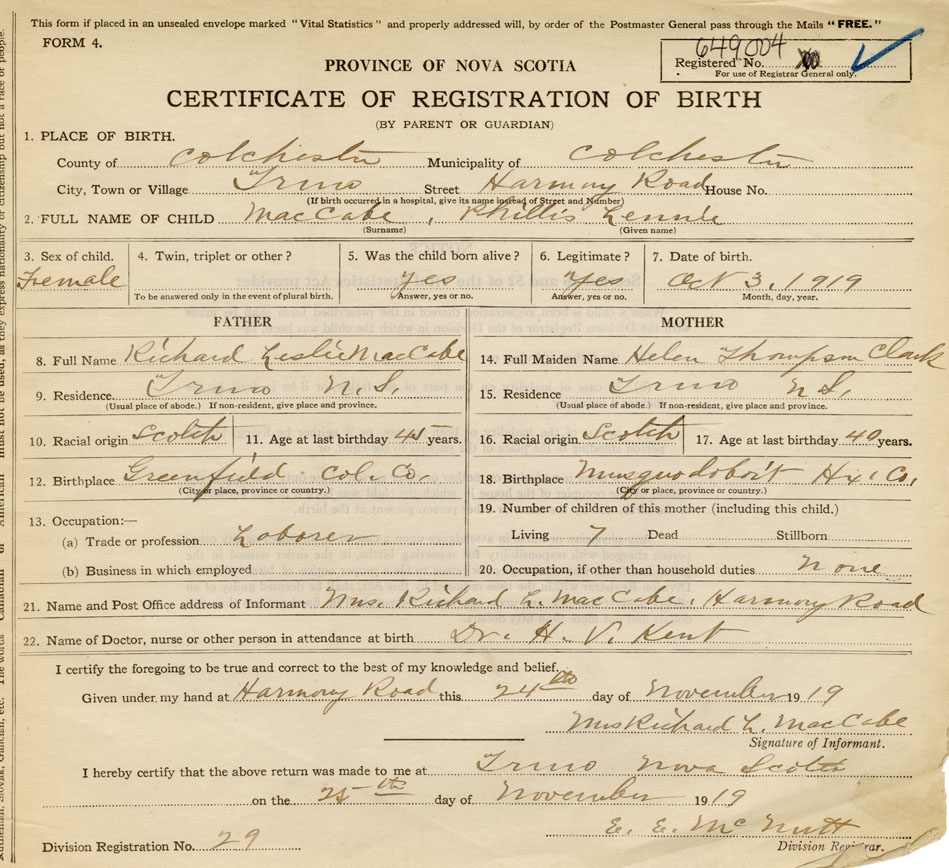 This form if placed in an unsealed envelope marked "Vital Statistics" and properly addressed will, by order of the Postmaster General pass through the Mails "FREE."
FORM 4.
649004
Registered No.
For use of Registrar General only.
PROVINCE OF NOVA SCOTIA
CERTIFICATE OF REGISTRATION OF BIRTH
(BY PARENT OR GUARDIAN)
1. PLACE OF BIRTH.
County of Colchester Municipality of Colchester
City, Town or Village Truro Street Harmony Road House No.
(If birth occurred in a hospital, give its name instead of Street and Number)
2. FULL NAME OF CHILD MacCabe, Phillis Lennie
(Surname) (Given name)
3. Sex of child. 4. Twin, triplet or other? 5. Was the child born alive? 6. Legitimate? 7. Date of birth.
Female Yes Yes Oct 3, 1919
To be answered only in the event of plural birth. Answer, yes or no. Answer, yes or no. Month, day, year.
FATHER MOTHER
8. Full Name Richard Leslie MacCabe 14. Full Maiden Name Helen Thompson Clark
9. Residence. Truro N.S. 15. Residence Truro N S.
(Usual place of abode.) If non-resident, give place and province. (Usual place of abode.) If non-resident, give place and province.
10. Racial origin Scotch 11. Age at last birthday 45 years. 16. Racial origin Scotch 17. Age at last birthday 40 years.
12. Birthplace Greenfield Col. Co. 18. Birthplace Musquodoboit Hx. Co.
(City or place, province or country.) (City or place, province or country.)
13. Occupation:— 19. Number of children of this mother (including this child.)
(a) Trade or profession Laborer Living 7 Dead Stillborn
(b) Business in which employed 20. Occupation, if other than household duties None
21. Name and Post Office address of Informant Mrs. Richard L. MacCabe, Harmony Road
22. Name of Doctor, nurse or other person in attendance at birth Dr. H. V. Kent
I certify the foregoing to be true and correct to the best of my knowledge and belief.
Given under my hand at Harmony Road this 24th day of November 1919
Mrs Richard L. MacCabe
Signature of Informant.
I hereby certify that the above return was made to me at Truro Nova Scotia
on the 25th day of November 1919
E. E. McNutt
Division Registration No. 29 Division Registrar.